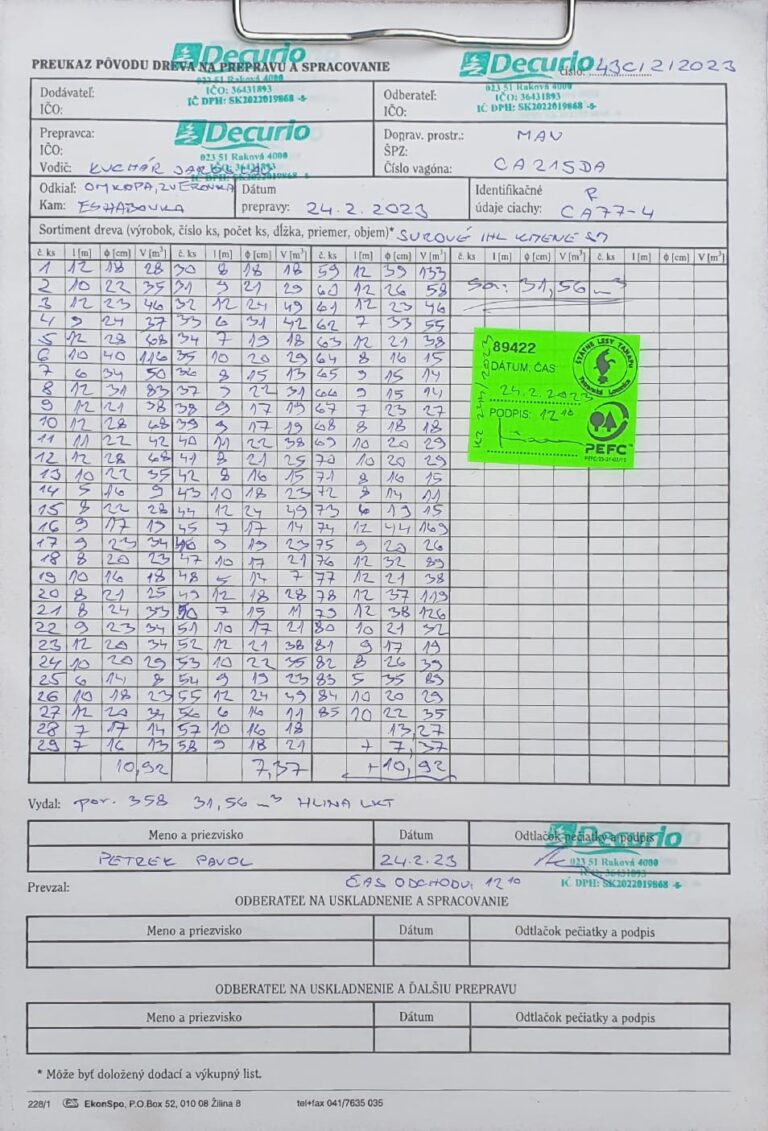 PREUKAZ PÔVODU DREVA NA PREPRAVU A SPRACOVANIE
Decurio
023 51 Raková 4000
IČO: 36431893
IČ DPH: SK2022019868 -5-
Decurio
023 51 Raková 4000
IČO: 36431893
IČ DPH: SK2022019868 -5-
číslo: 43C/2/2023
Dodávateľ:
IČO:
Odberateľ:
IČO:
Prepravca:
IČO:
Vodič: KUCHÁR JAROSLAV
Decurio
023 51 Raková 4000
IČO: 36431893
IČ DPH: SK2022019868 -5-
Doprav. prostr.: MAN
ŠPZ:
Číslo vagóna: CA215DA
Odkiaľ: OMKOPA, ZVEROVKA
Kam:
Dátum
prepravy: 24.2.2023
Identifikačné R
údaje ciachy: CA77-4
Sortiment dreva (výrobok, číslo ks, počet ks, dĺžka, priemer, objem)* SUROVÉ IHL KMENE SM
č. ks l [m] ϕ [cm] V [m³] č. ks l [m] ϕ [cm] V [m³] č. ks l [m] ϕ [cm] V [m³] č. ks l [m] ϕ [cm] V [m³] č. ks l [m] ϕ [cm] V [m³]
1 12 18 28 30 8 18 18 59 12 39 133
2 10 22 35 31 9 21 29 60 12 26 58
31,56 m³
3 12 23 46 32 12 24 49 61 12 23 46
4 9 24 37 33 6 31 42 62 7 33 55
5 12 28 68 34 7 19 18 63 12 21 38
6 10 40 116 35 10 20 29 64 8 16 15
7 6 34 50 36 8 15 13 65 9 15 14
8 12 31 83 37 9 22 31 66 9 15 14
9 12 21 38 38 9 17 19 67 7 23 27
10 12 28 68 39 9 17 19 68 8 18 18
11 11 22 42 40 11 22 38 69 10 20 29
12 12 28 68 41 8 21 25 70 10 20 29
13 10 22 35 42 8 16 15 71 8 16 15
14 5 16 9 43 10 18 23 72 8 14 11
15 8 22 28 44 12 24 49 73 6 19 15
16 9 17 19 45 7 17 14 74 12 44 169
17 9 23 34 46 9 19 23 75 9 20 26
18 8 20 23 47 10 17 21 76 12 32 89
19 10 16 18 48 5 14 7 77 12 21 38
20 8 21 25 49 12 18 28 78 12 37 119
21 8 24 33 50 7 15 11 79 12 38 126
22 9 23 34 51 10 17 21 80 10 21 32
23 12 20 34 52 12 21 38 81 9 17 19
24 10 20 29 53 10 22 35 82 8 26 39
25 6 14 8 54 9 19 23 83 5 35 89
26 10 18 23 55 12 24 49 84 10 20 29
27 12 20 34 56 6 16 11 85 10 22 35
28 7 17 14 57 10 16 18 13,27
29 7 16 13 58 9 18 21 + 7,37
10,92 7,37 +10,92
89422
DÁTUM, ČAS
24.2.2023
PODPIS: 12¹⁰
ŠTÁTNE LESY TANAPU
Tatranská Lomnica
PEFC
Vydal: por. 358 31,56 m³ HLINA LKT
Meno a priezvisko Dátum Odtlačok pečiatky a podpis
PETREK PAVOL 24.2.23
Decurio
023 51 Raková 4000
IČO: 36431893
IČ DPH: SK2022019868 -5-
Prevzal: ČAS ODCHODU: 12¹⁰
ODBERATEĽ NA USKLADNENIE A SPRACOVANIE
Meno a priezvisko Dátum Odtlačok pečiatky a podpis
ODBERATEĽ NA USKLADNENIE A ĎALŠIU PREPRAVU
Meno a priezvisko Dátum Odtlačok pečiatky a podpis
* Môže byť doložený dodací a výkupný list.
228/1 EkonSpo, P.O.Box 52, 010 08 Žilina 8 tel+fax 041/7635 035